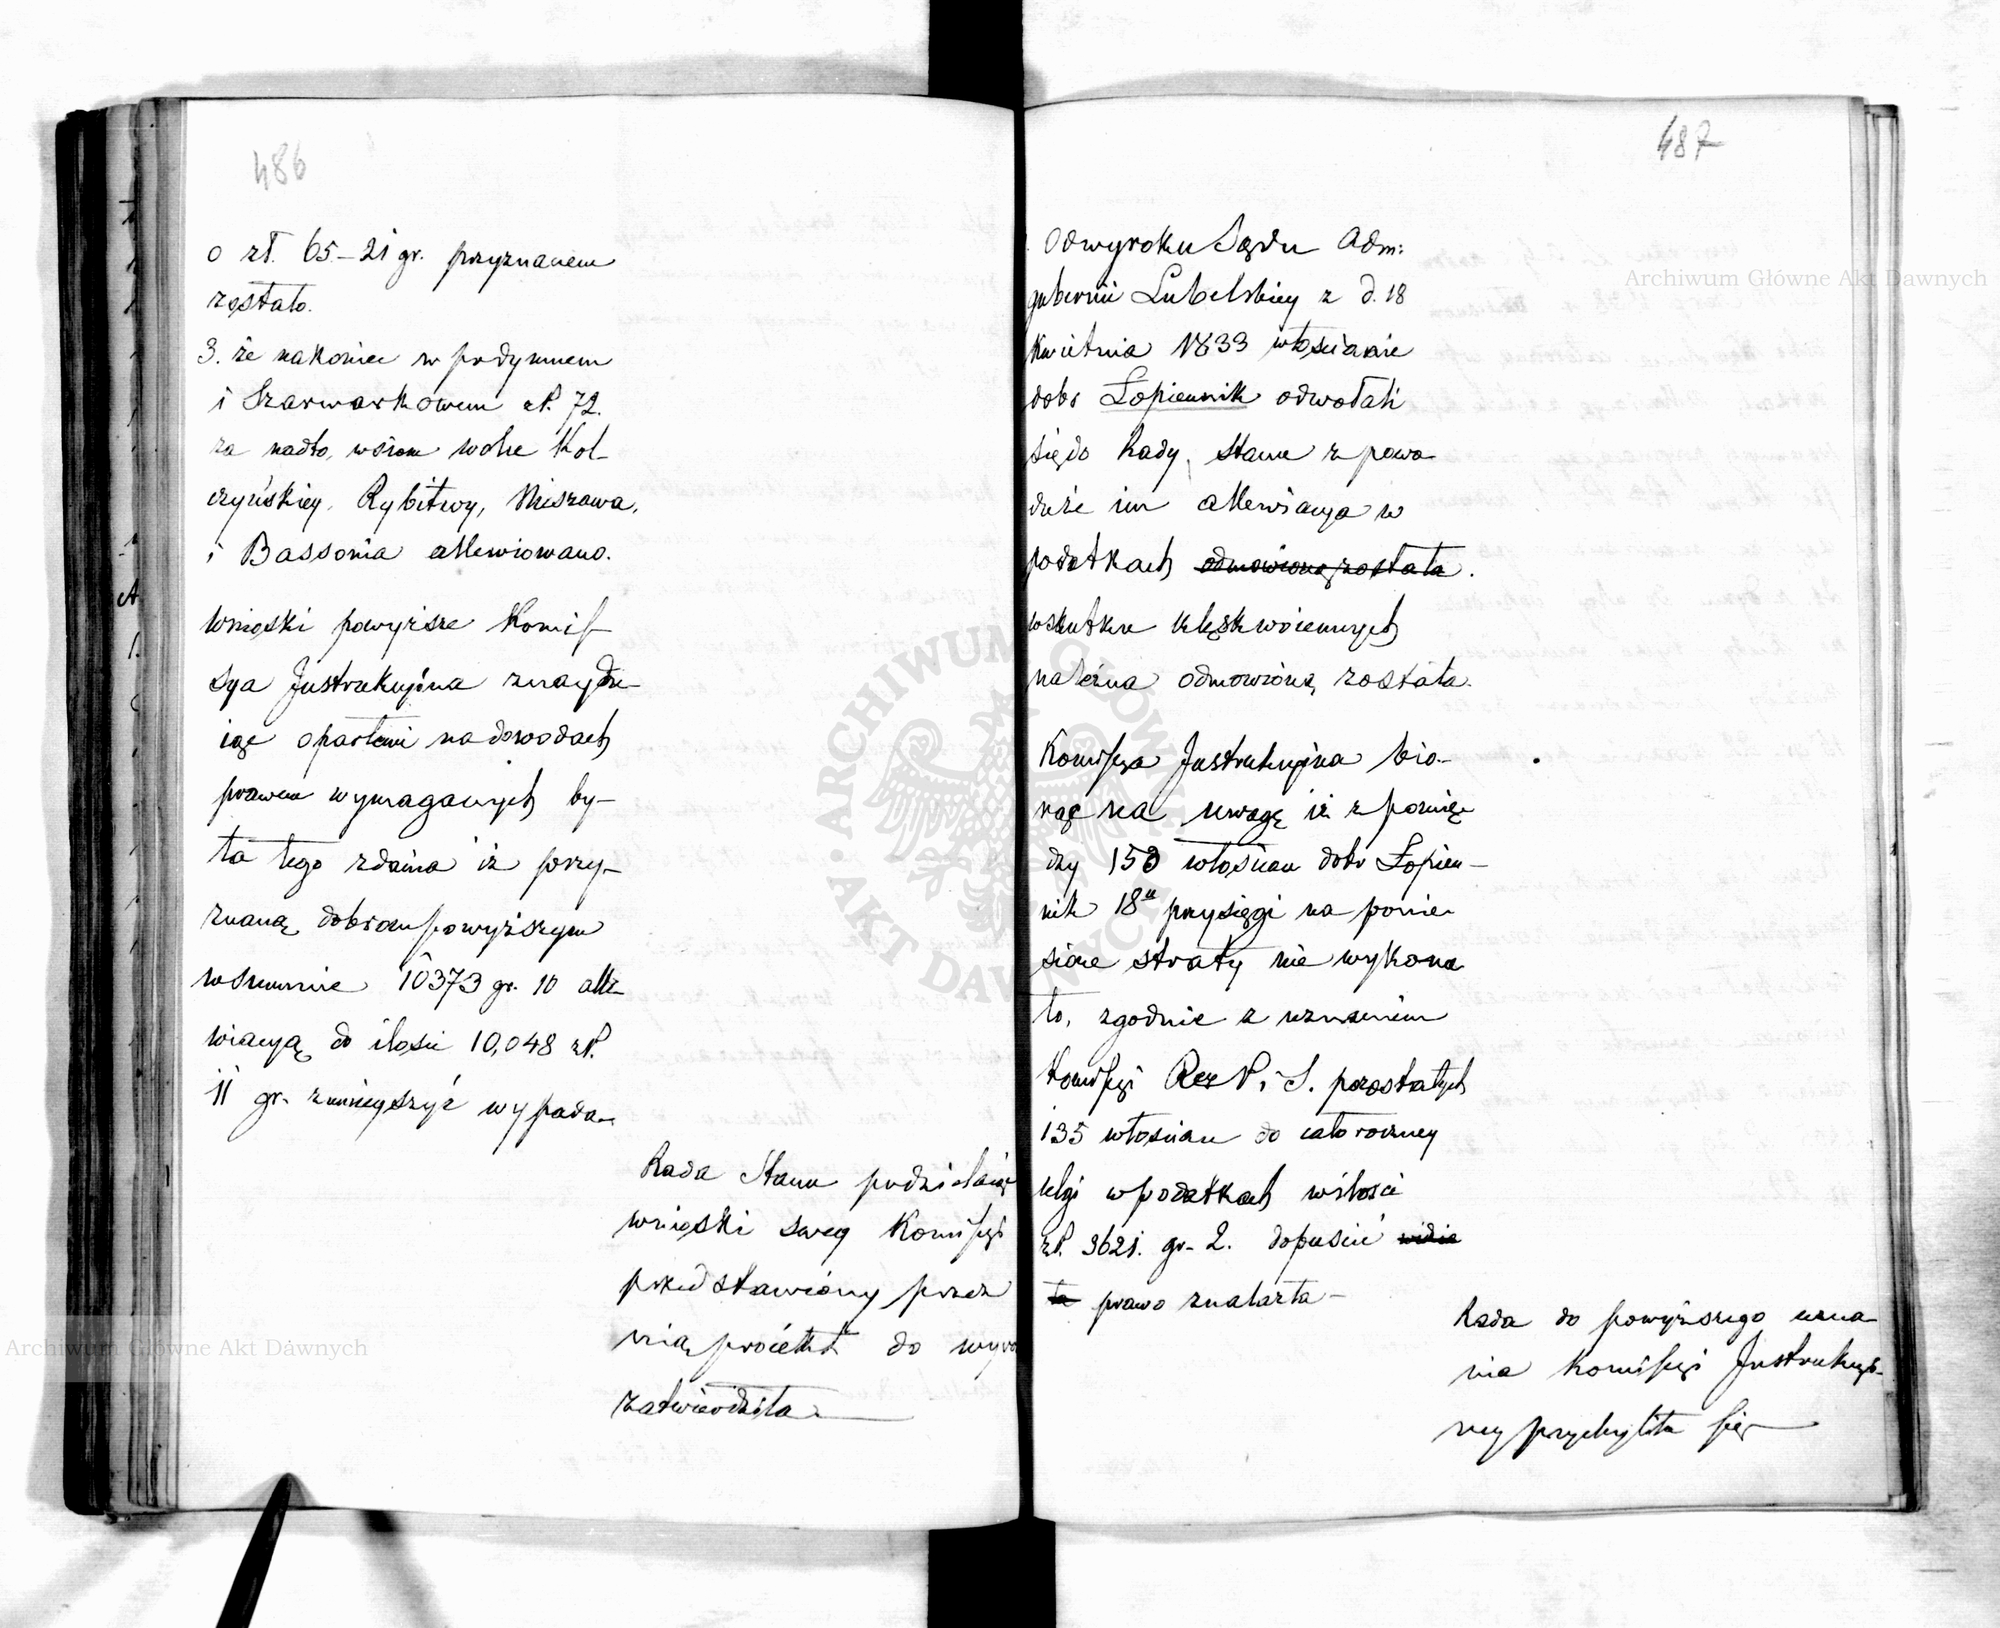 486
o zł. 65–21 gr. przyznanem
zostało.
3. że nakoniec w podymnem
i Szarwarkowem zł. 72.
za nadto, wsiom wolce Kol-
czyńskiey, Rybitwy, Niszawa,
i Bassonia allewiowano.
Wnioski powyższe Komis-
sya Instrukcyina znaydu-
iąc opartemi na dowodach
prawem wymaganych by-
ła tego zdania iż przy-
znaną dobrom powyższym
w summie 10373 gr. 10 alle-
wiacyą do ilosci 10,048 zł.
11 gr. zmnieyszyć wypada.
Rada Stanu podzielaiąc
wnioski swey Komissyi
przedstawiony przez
nią proiekt do wyro
zatwierdziła
487
Od wyroku Sądu Adm:
gubernii Lubelskiey z d. 18
Kwietnia 1833 włościanie
dobr Łopiennik odwołali
się do Rady Stanu z powo
du że im allewiacya w
podatkach odmowioną została.
wskutku klęsk woiennych
należna odmowioną została.
Komissya Instrukcyina bio-
rąc na uwagę iż z pomię
dzy 153 włościan dobr Łopien-
nik 18u przysięgi na ponie-
sione straty nie wykona
ło, zgodnie z uznaniem
Komissyi Rz. P. i S. pozostałych
135 włościan do całoroczney
ulgi w podatkach w ilosci
zł. 3621. gr. 2. dopuscić widzia
ła prawo znalazła
Rada do powyższego uzna
nia Komissyi Instrukcyi-
ney przychyliła się
Archiwum Główne Akt Dawnych
Archiwum Główne Akt Dawnych
ARCHIWUM GŁÓWNE AKT DAWNYCH